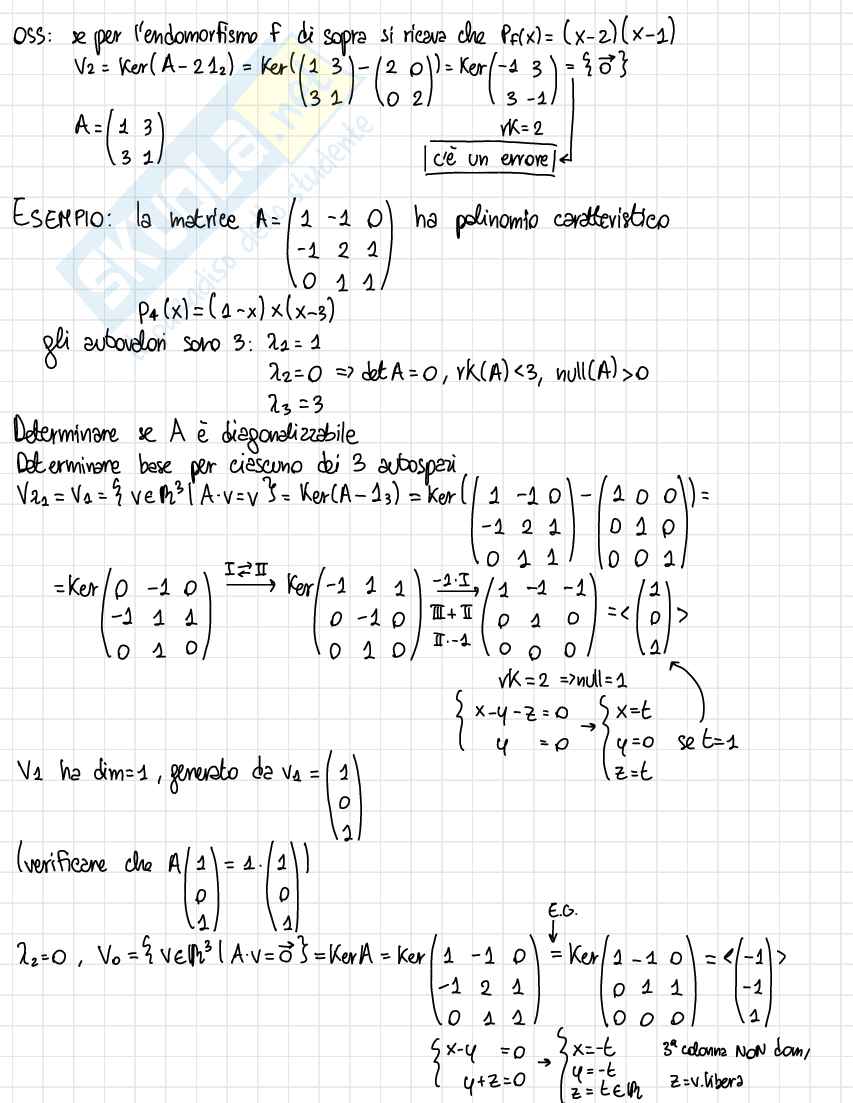 OSS: se per l'endomorfismo f di sopra si ricava che Pf(x) = (x-2)(x-1)
V2 = Ker(A-2 1₂) = Ker((1 3; 3 1) - (2 0; 0 2)) = Ker(-1 3; 3 -1) = {0⃗}
A = (1 3; 3 1)
rk=2
c'è un errore
ESEMPIO: la matrice A = (1 -1 0; -1 2 1; 0 1 1) ha polinomio caratteristico
P_A(x) = (1-x)x(x-3)
gli autovalori sono 3: λ1 = 1
λ2 = 0 => det A = 0, rk(A) < 3, null(A) > 0
λ3 = 3
Determinare se A è diagonalizzabile
Determinare base per ciascuno dei 3 autospazi
Vλ1 = V1 = {v∈ℝ³ | A·v=v} = Ker(A-1₃) = Ker((1 -1 0; -1 2 1; 0 1 1) - (1 0 0; 0 1 0; 0 0 1)) =
= Ker(0 -1 0; -1 1 1; 0 1 0) I⇄II → Ker(-1 1 1; 0 -1 0; 0 1 0) -1·I III+II II·-1 → (1 -1 -1; 0 1 0; 0 0 0) = <(1; 0; 1)>
rk=2 => null=1
{x-y-z=0 → {x=t
y =0 y=0 se t=1
z=t
V1 ha dim=1, generato da v1 = (1; 0; 1)
(verificare che A(1; 0; 1) = 1·(1; 0; 1))
E.G.
λ2=0, V0 = {v∈ℝ³ | A·v=0⃗} = Ker A = Ker(1 -1 0; -1 2 1; 0 1 1) = Ker(1 -1 0; 0 1 1; 0 0 0) = <(-1; -1; 1)>
{x-y =0 → {x=-t 3ª colonna NON dom,
y+z=0 y=-t
z=t∈ℝ z=v.libera
SKUOLA.net
il paradiso dello studente